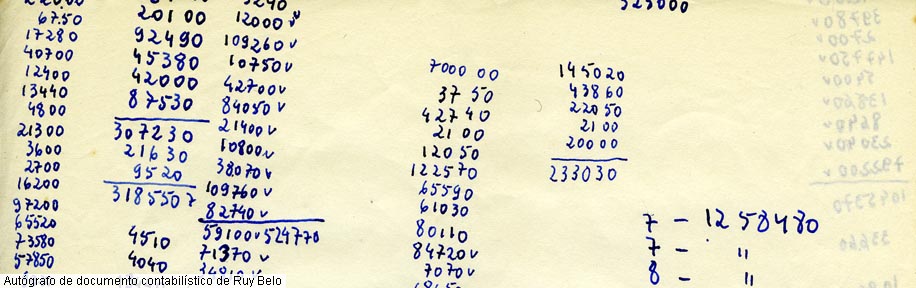 323000
20100
12000 v
67.50
92490
109260 v
17280
45380
10750 v
40700
42000
42700 v
12400
87530
84050 v
13440
307230
21400 v
4800
21630
10800 v
21300
9520
38070 v
3600
3185507
109760 v
2700
82740 v
16200
59100 v 524770
97200
4510
71370 v
65520
4040
73580
57850
7000 00
145020
37 50
43860
42740
22050
21 00
21 00
12050
20000
122570
233030
65590
61030
80110
84720 v
7070 v
7 - 1258480
7 - "
8 - "
Autógrafo de documento contabilístico de Ruy Belo